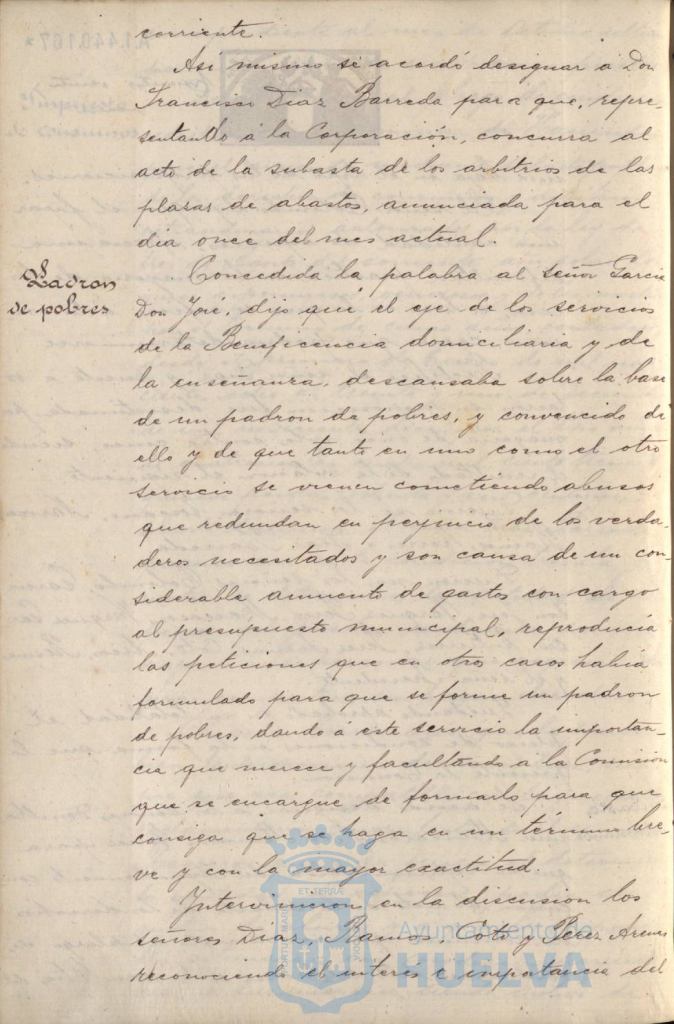 corriente.
Así mismo se acordó designar á Don
Francisco Diaz Barreda para que, repre-
sentando á la Corporación, concurra al
acto de la subasta de los arbitrios de las
plazas de abastos, anunciada para el
dia once del mes actual.
Padron
de pobres
Concedida la palabra al señor Garcia
Don José, dijo que el eje de los servicios
de la Beneficencia domiciliaria y de
la enseñanza, descansaba sobre la base
de un padron de pobres, y convencido de
ello y de que tanto en uno como el otro
servicio se vienen cometiendo abusos
que redundan en perjuicio de los verda-
deros necesitados y son causa de un con-
siderable aumento de gastos con cargo
al presupuesto municipal, reproducía
las peticiones que en otros casos había
formulado para que se forme un padron
de pobres, dando á este servicio la importan-
cia que merece y facultando á la Comisión
que se encargue de formarlo para que
consiga que se haga en un término bre-
ve y con la mayor exactitud.
Intervinieron en la discusion los
señores Diaz, Ramos, Coto y Perez
reconociendo el interes e importancia del
Ayuntamiento de
HUELVA